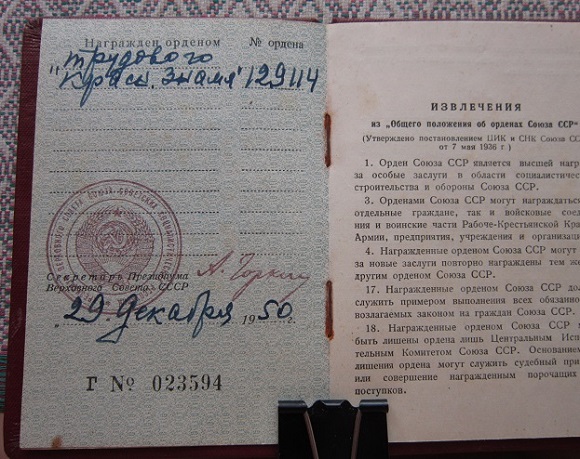 Награжден орденом № ордена
трудового
"Красн. Знамя" 129114
Секретарь Президиума
Верховного Совета СССР
А. Горкин
„29" декабря 1950 г.
Г № 023594
ИЗВЛЕЧЕНИЯ
из „Общего положения об орденах Союза ССР"
(Утверждено постановлением ЦИК и СНК Союза СС
от 7 мая 1936 г)
1. Орден Союза ССР является высшей нагр
за особые заслуги в области социалистичес
строительства и обороны Союза ССР.
3. Орденами Союза ССР могут награждаться
отдельные граждане, так и войсковые соеди
и воинские части Рабоче-Крестьянской Кра
Армии, предприятия, учреждения и организац
4. Награжденные орденом Союза ССР могут
за новые заслуги повторно награждены тем же
другим орденом Союза ССР.
17. Награжденные орденом Союза ССР дол
служить примером выполнения всех обязанно
возлагаемых законом на граждан Союза ССР.
18. Награжденные орденом Союза ССР
быть лишены ордена лишь Центральным Испо
тельным Комитетом Союза ССР. Основанием
лишения ордена могут служить судебный при
или совершение награжденным порочащих
поступков.